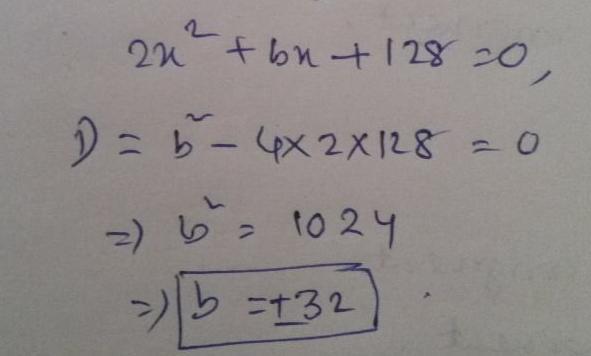 2x² + bx + 128 = 0,
D = b² - 4×2×128 = 0
=) b² = 1024
=) b = ±32 .